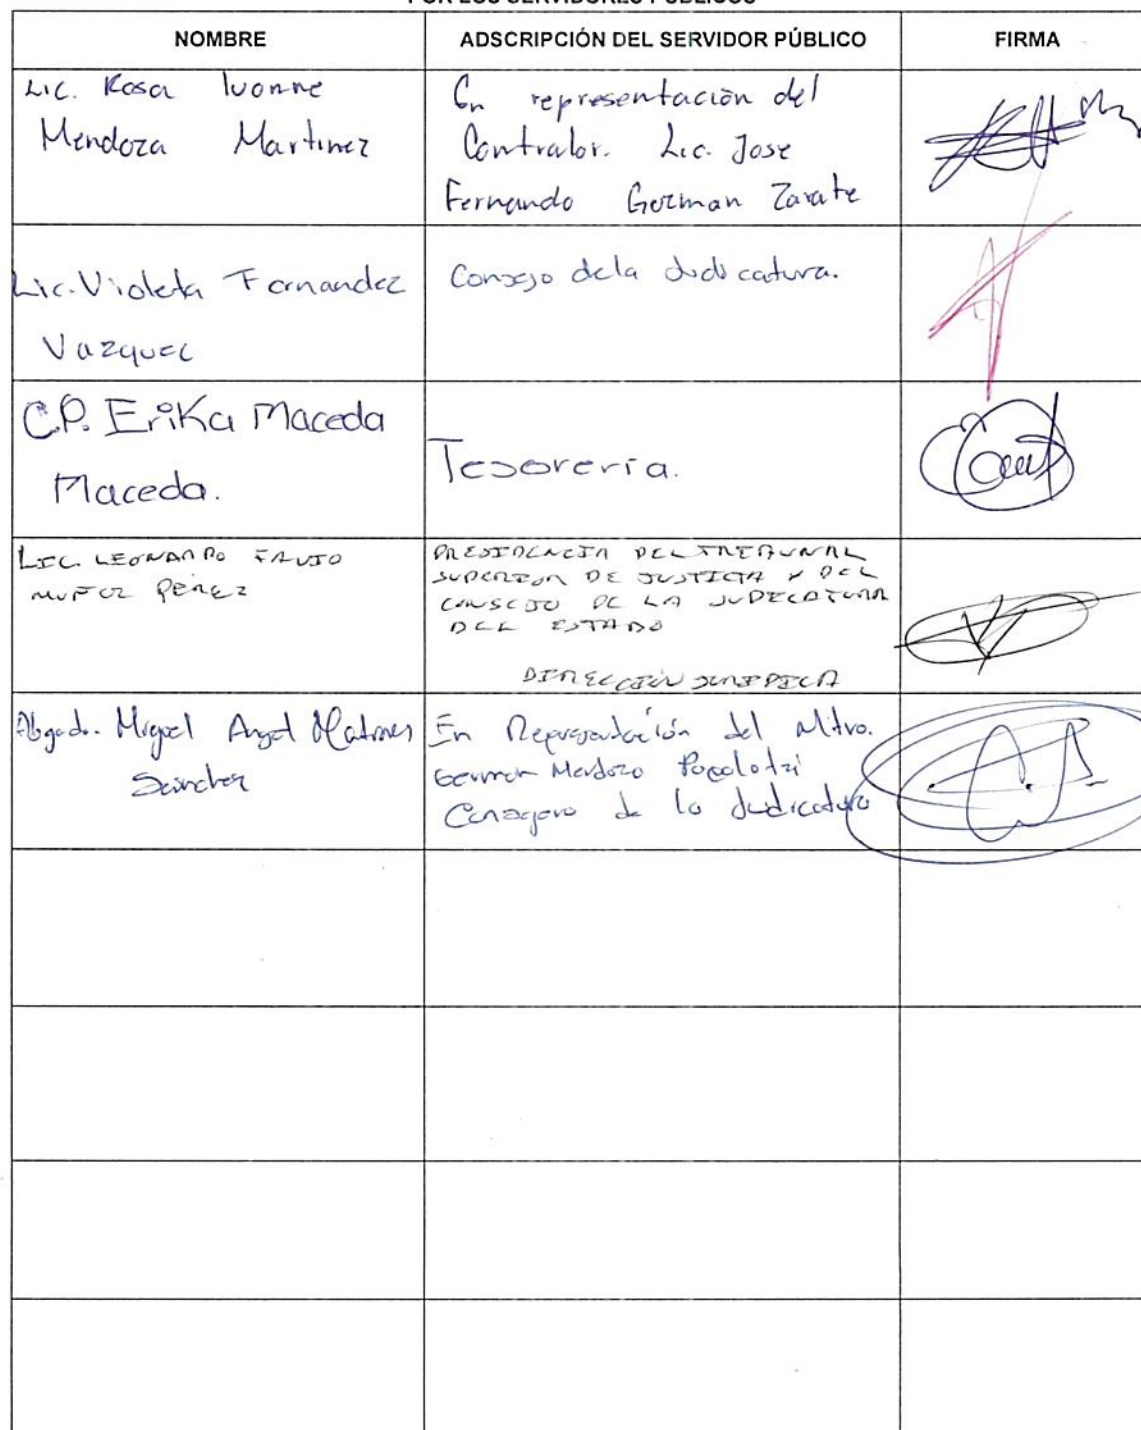 POR LOS SERVIDORES PÚBLICOS
NOMBRE
ADSCRIPCIÓN DEL SERVIDOR PÚBLICO
FIRMA
Lic. Rosa Ivonne
Mendoza Martinez
En representación del
Contralor. Lic. Jose
Fernando German Zarate
Lic. Violeta Fernandez
Vazquez
Consejo de la Judicatura.
C.P. Erika Maceda
Maceda.
Tesorería.
LIC. LEONARDO FAVIO
MUÑOZ PÉREZ
PRESIDENCIA DEL TRIBUNAL
SUPERIOR DE JUSTICIA Y DEL
CONSEJO DE LA JUDICATURA
DEL ESTADO
DIRECCIÓN JURIDICA
Abgado. Miguel Angel
Sánchez
En Representación del Mtro.
German Mendoza
Consejero de la Judicatura